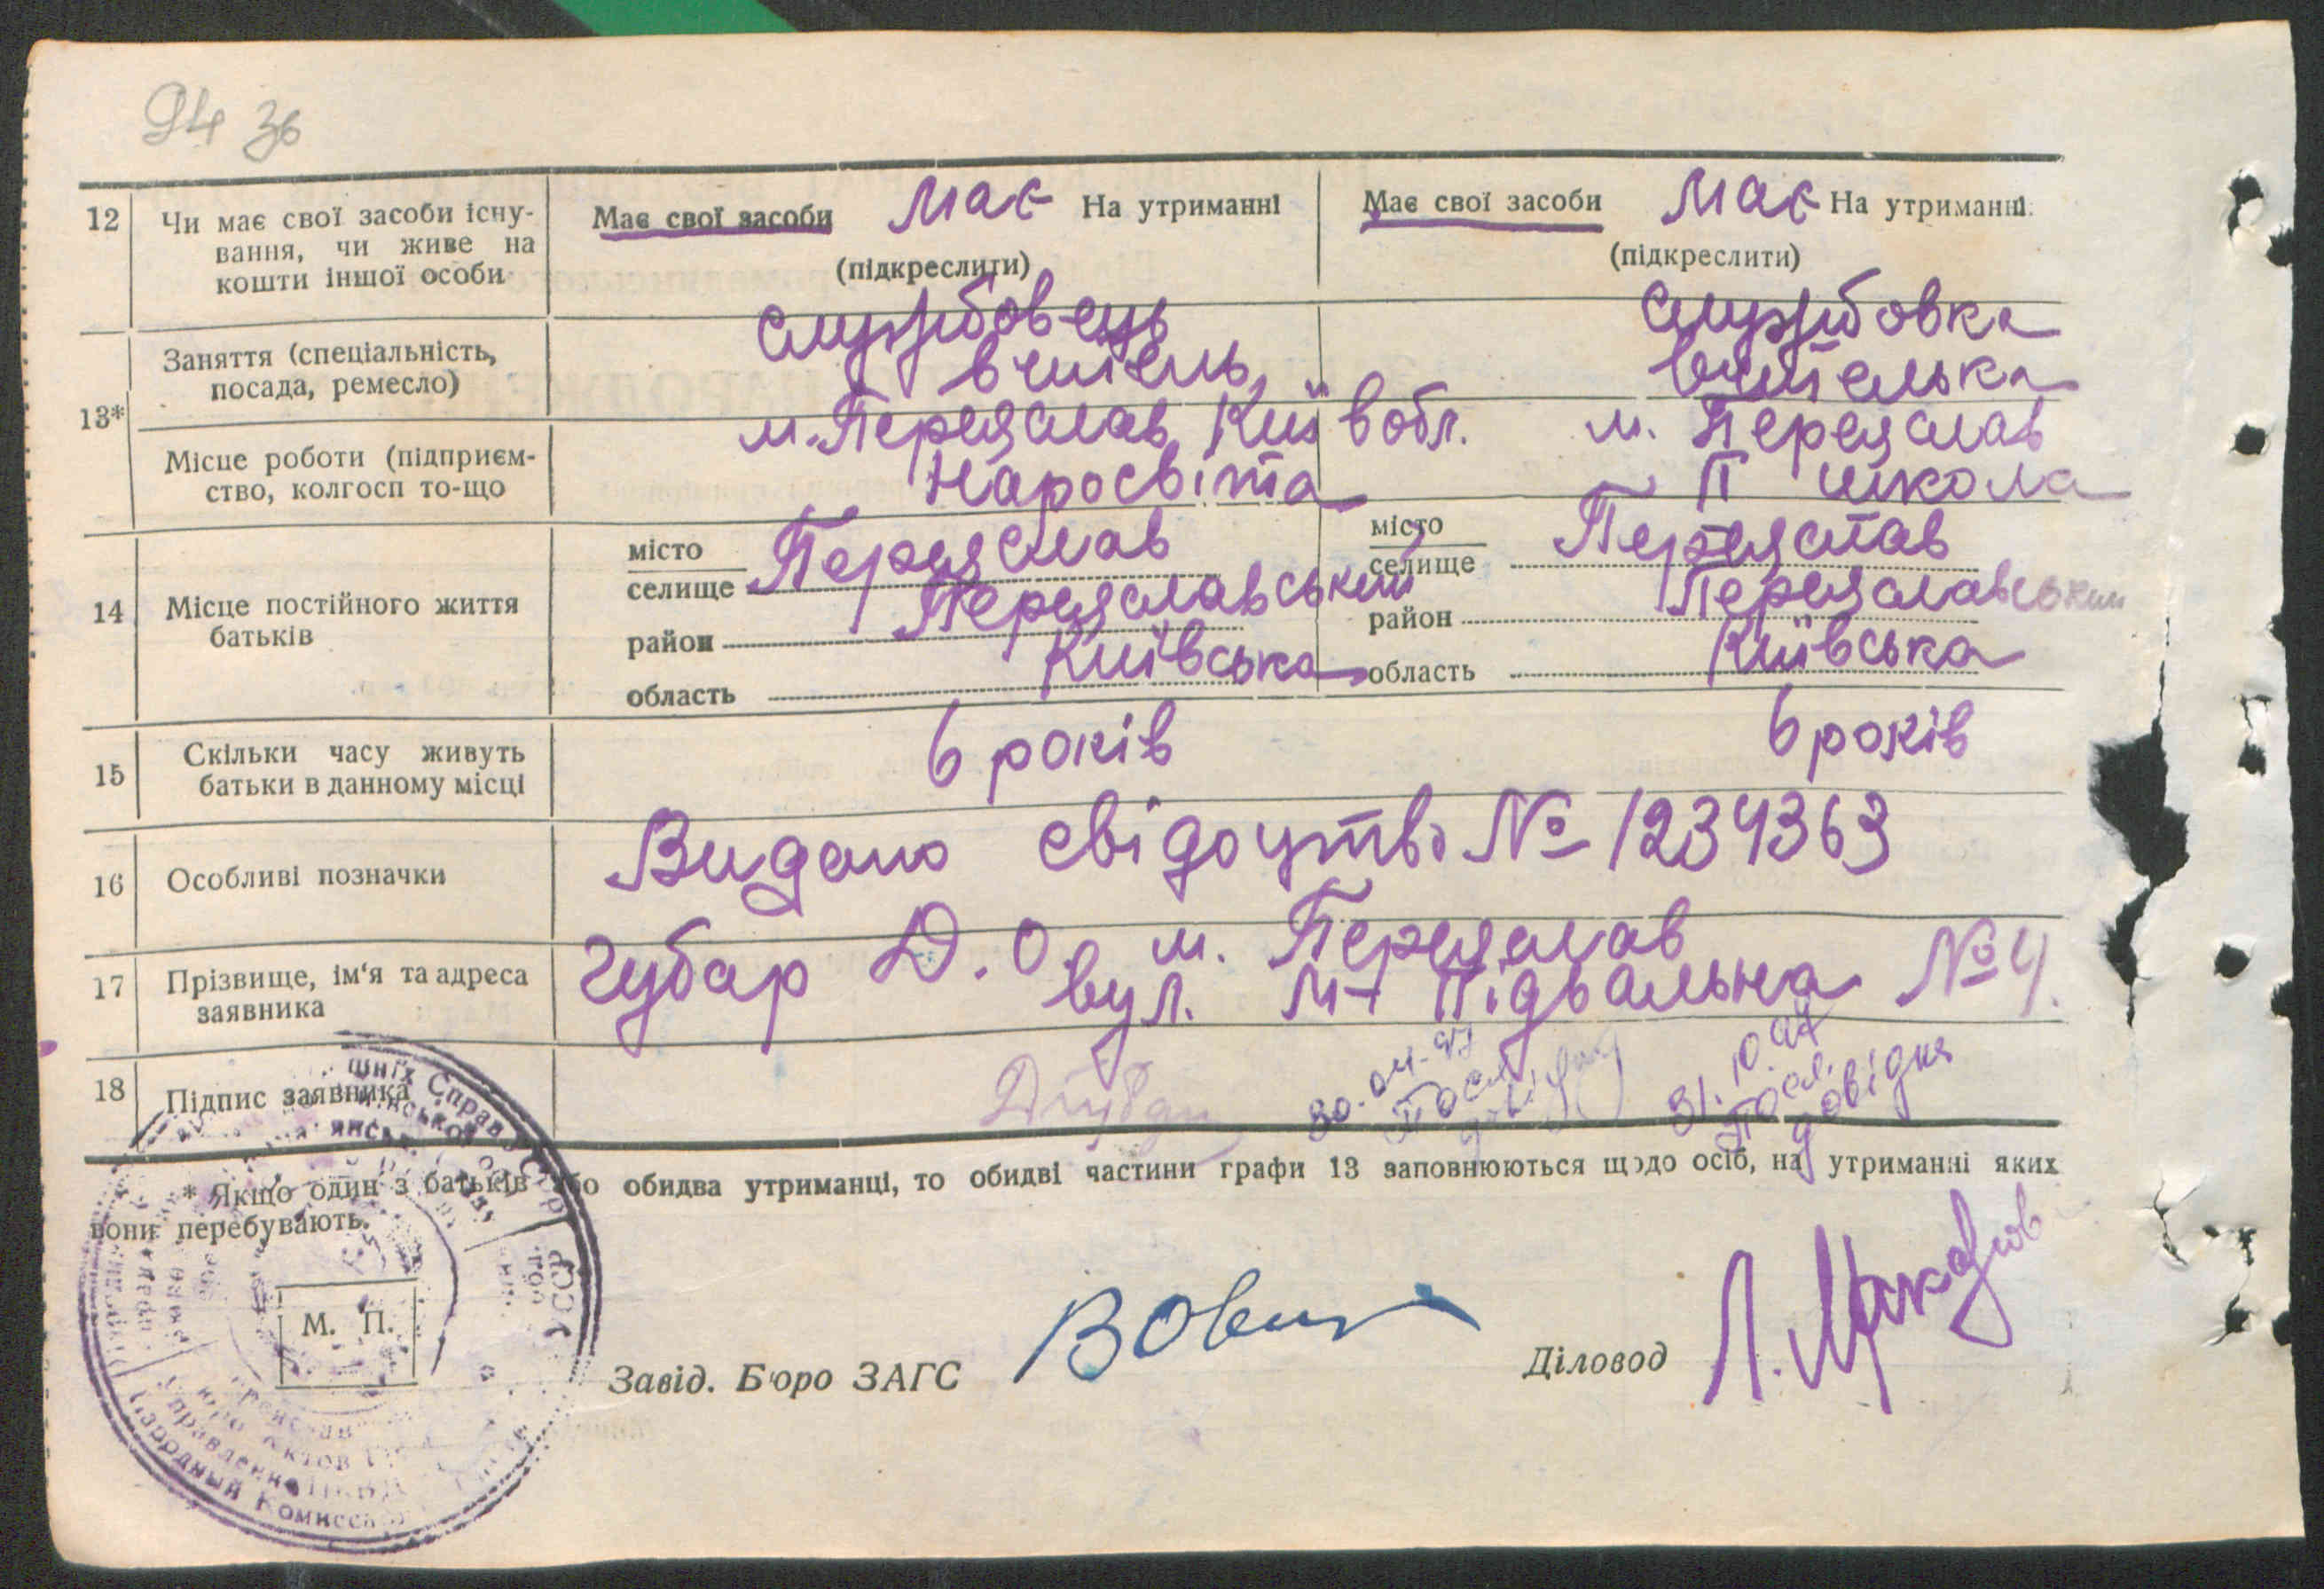 94 зв
12 Чи має свої засоби існу-
вання, чи живе на
кошти іншої особи
Має свої засоби має На утриманні
(підкреслити)
Має свої засоби має На утриманні
(підкреслити)
13*
Заняття (спеціальність,
посада, ремесло)
службовець
вчитель
службовка
вчителька
Місце роботи (підприєм-
ство, колгосп то-що
м. Переяслав Київ обл.
Наросвіта
м. Переяслав
П школа
14 Місце постійного життя
батьків
місто
селище Переяслав
район Переяславський
область Київська
місто
селище Переяслав
район Переяславський
область Київська
15 Скільки часу живуть
батьки в данному місці
6 років
6 років
16 Особливі позначки
Видано свідоцтво № 1234363
17 Прізвище, ім'я та адреса
заявника
Губар Д. О. м. Переяслав
вул. Підвальна № 4.
18 Підпис заявника
31.10.97
довідка
* Якщо один з батьків або обидва утриманці, то обидві частини графи 13 заповнюються щодо осіб, на утриманні яких
вони перебувають.
М. П.
Завід. Бюро ЗАГС
Діловод